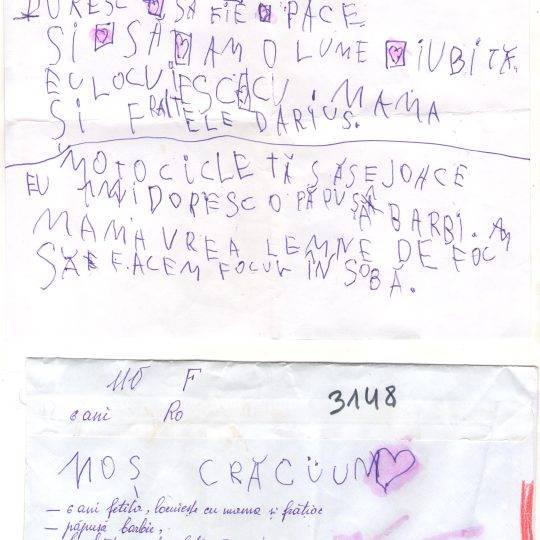 DORESC SĂ FIE PACE
SI SĂ AM O LUME IUBITĂ.
EU LOCUIESC CU MAMA
SI FRATELE DARIUS.
MOTOCICLETĂ SĂ SE JOACE
EU IMI DORESC O PĂPUSĂ
BARBI.
MAMA VREA LEMNE DE FOC
SĂ FACEM FOCUL IN SOBĂ.
F
6 ani Ro
3148
MOȘ CRĂCIUN
– 6 ani fetița, locuiește cu mama și frățior
– păpușă barbie,